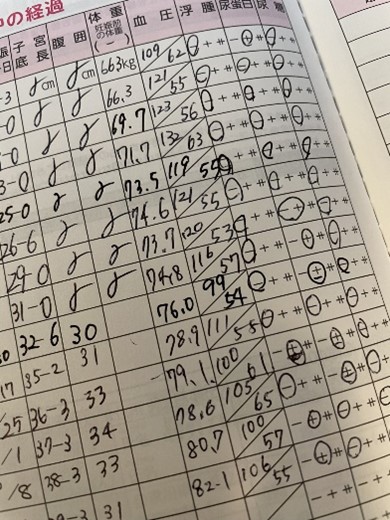 の経過
子宮底長 腹囲 体重 妊娠前の体重 血圧 浮腫 尿蛋白 尿糖
-3 γcm γcm 66.3kg 109/62 - + ⧺ - + ⧺ - + ⧺
-0 γ γ 66.3 121/55 - + ⧺ - + ⧺ - + ⧺
-0 γ γ 69.7 123/56 - + ⧺ - + ⧺ - + ⧺
3-0 γ γ 71.7 132/63 - + ⧺ - + ⧺ - + ⧺
25-0 γ γ 73.5 119/55 - + ⧺ - + ⧺ - + ⧺
26-6 γ γ 74.6 121/55 - + ⧺ - + ⧺ - + ⧺
29-0 γ γ 73.7 120/53 - + ⧺ - + ⧺ - + ⧺
31-0 γ γ 74.8 116/57 - + ⧺ - + ⧺ - + ⧺
32-6 30 76.0 99/54 - + ⧺ - + ⧺ - + ⧺
17 35-2 31 78.9 111/55 - + ⧺ - + ⧺ - + ⧺
/25 36-3 33 79.1 100/61 - + ⧺ - + ⧺ - + ⧺
/1 37-3 34 78.6 105/65 - + ⧺ - + ⧺ - + ⧺
/8 38-3 33 80.7 100/57 - + ⧺ - + ⧺ - + ⧺
31 82.1 106/55 - + ⧺ - + ⧺ - + ⧺
- + ⧺ - + ⧺